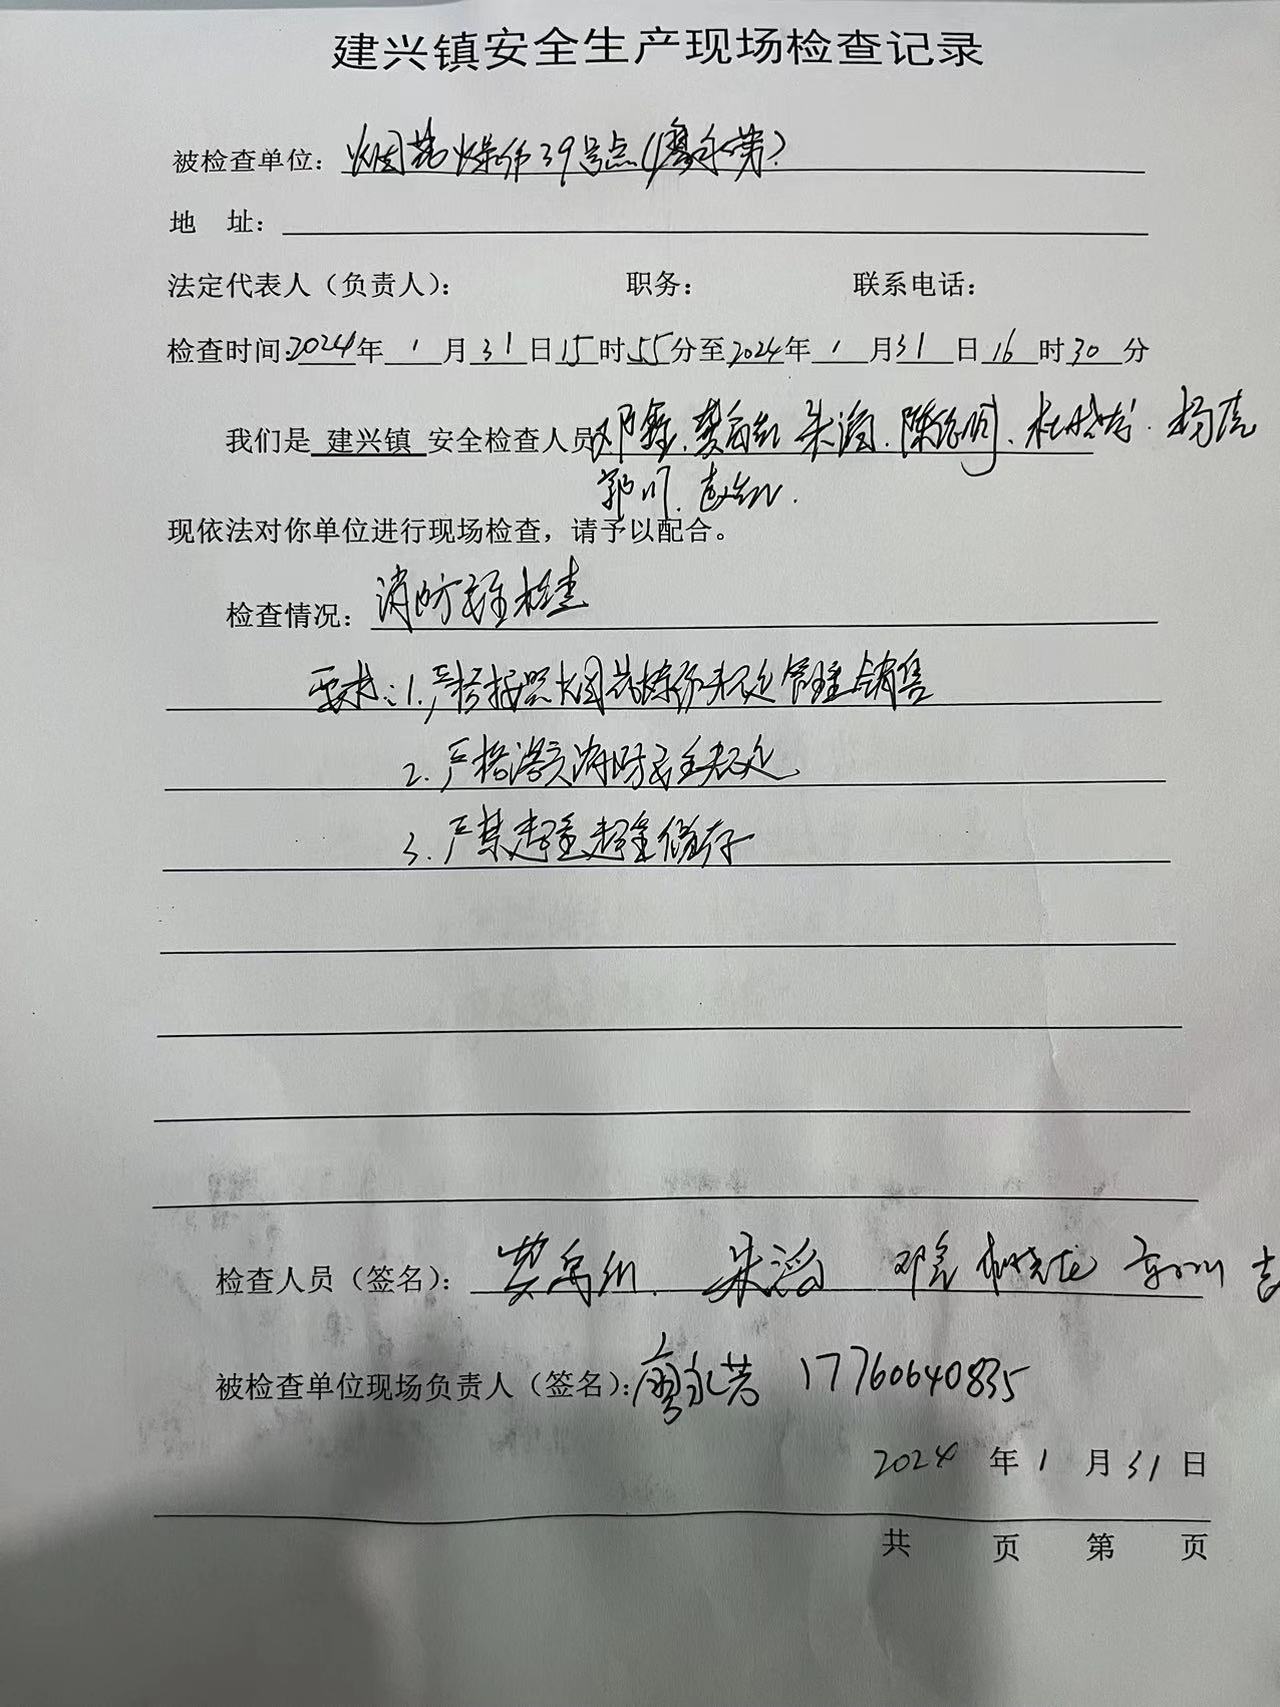 建兴镇安全生产现场检查记录
被检查单位：烟花爆竹39号点(廖永芳)
地 址：
法定代表人（负责人）： 职务： 联系电话：
检查时间:2024年1月31日15时55分至2024年1月31日16时30分
我们是 建兴镇 安全检查人员 邓鑫. 朱滔. 杜晓龙. 杨亮
郭川.
现依法对你单位进行现场检查，请予以配合。
检查情况：消防安全检查
要求:1.严格按照烟花爆竹规定管理销售
2.严格落实消防安全规定
3.严禁超量超量储存
检查人员（签名）： 朱滔 邓鑫 杜晓龙 郭川
被检查单位现场负责人（签名）:廖永芳 17760640835
2024年1月31日
共 页 第 页